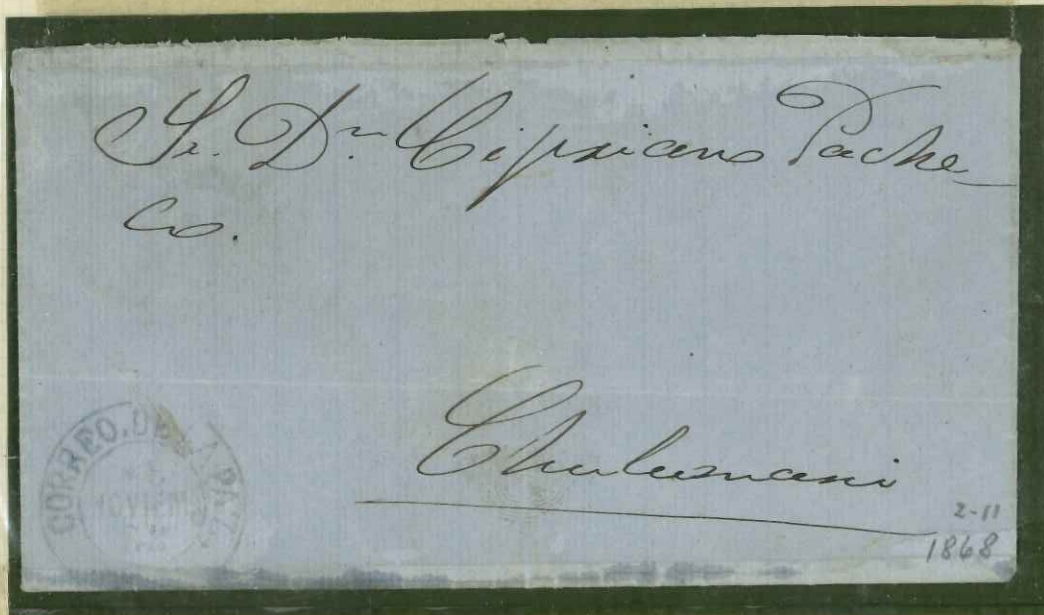 Sr. Dn. Cipriano Pache_
co.
Chulumani
CORREO. DE LA PAZ
2-11
1868